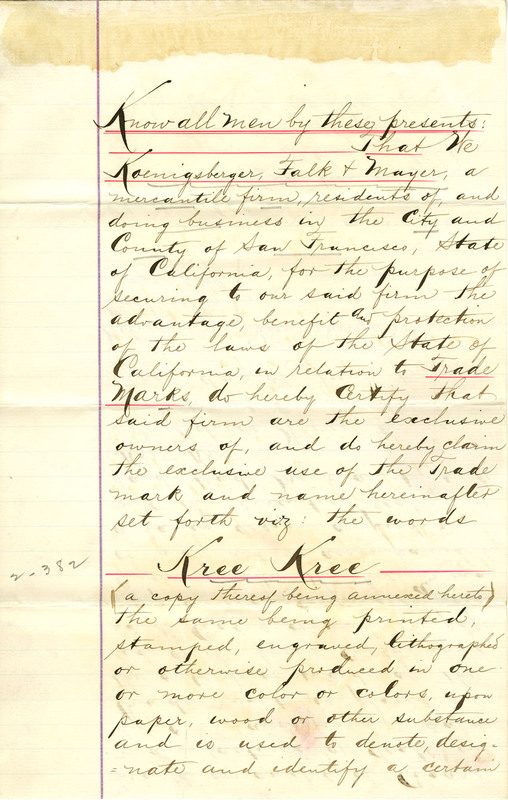 Know all men by these presents:
That We
Koenigsberger, Falk & Mayer, a
mercantile firm, residents of, and
doing business in the City and
County of San Francisco, State
of California, for the purpose of
securing to our said firm the
advantage, benefit and protection
of the laws of the State of
California, in relation to Trade
Marks, do hereby Certify that
said firm are the exclusive
owners of, and do hereby claim
the exclusive use of the Trade
mark and name hereinafter
set forth viz: the words
Kree Kree
2-382
(a copy thereof being annexed hereto)
the same being printed,
stamped, engraved, lithographed
or otherwise produced, in one
or more color or colors, upon
paper, wood or other substance
and is used to denote, desig-
=nate and identify a certain